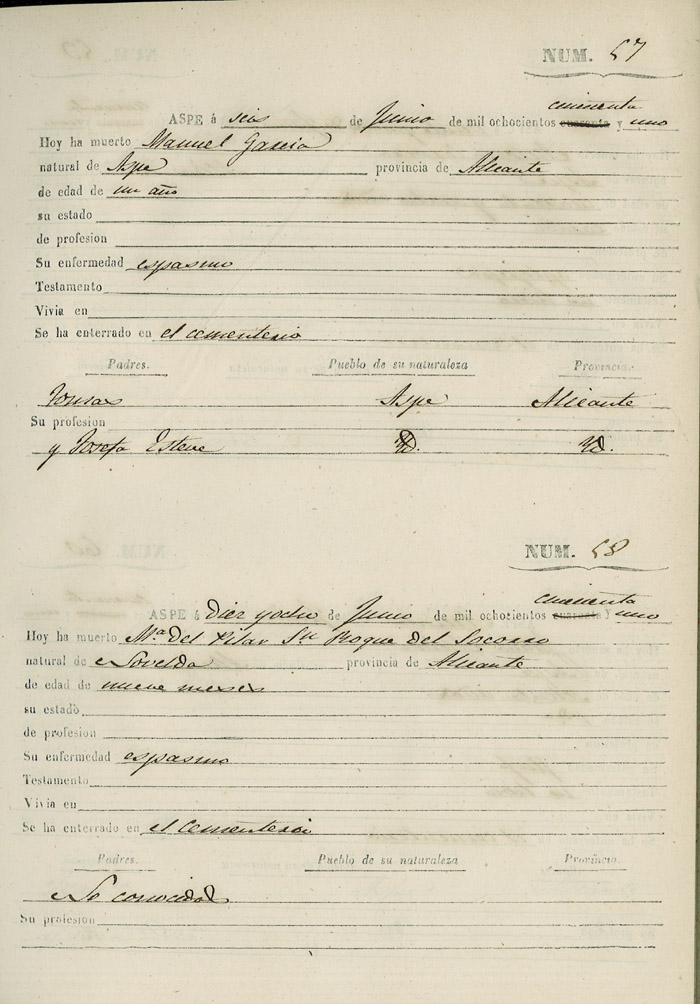 NUM. 57
cincuenta
ASPE á seis de Junio de mil ochocientos cuarenta y uno
Hoy ha muerto Manuel Garcia
natural de Aspe provincia de Alicante
de edad de un año
su estado
de profesion
Su enfermedad espasmo
Testamento
Vivia en
Se ha enterrado en el cementerio
Padres. Pueblo de su naturaleza Provincia.
Tomas Aspe Alicante
Su profesion
y Josefa Esteve Yd. Yd.
NUM. 58
cincuenta
ASPE á Diez y ocho de Junio de mil ochocientos cuarenta y uno
Hoy ha muerto Mª. del Pilar Sn Roque del Socorro
natural de Novelda provincia de Alicante
de edad de nueve meses
su estado
de profesion
Su enfermedad espasmo
Testamento
Vivia en
Se ha enterrado en el cementerio
Padres. Pueblo de su naturaleza Provincia.
No conocidos
Su profesion